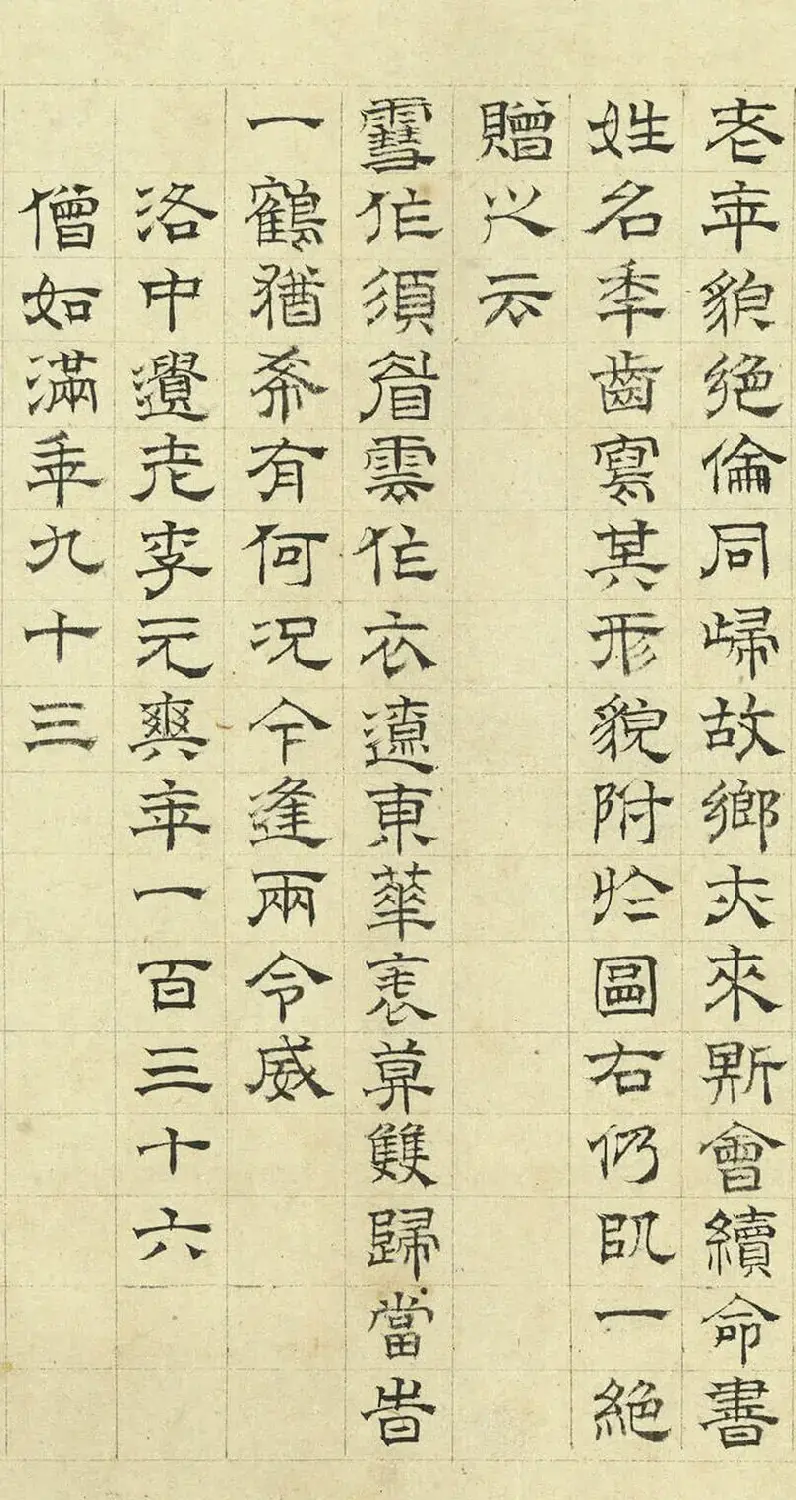 老年貌絕倫同歸故鄉亦來斯會續命書
姓名年齒寫其形貌附於圖右仍以一絕
贈之云
雪作須眉雲作衣遼東華表莫雙歸當旹
一鶴猶希有何況今逢兩令威
洛中遺老李元爽年一百三十六
僧如滿年九十三